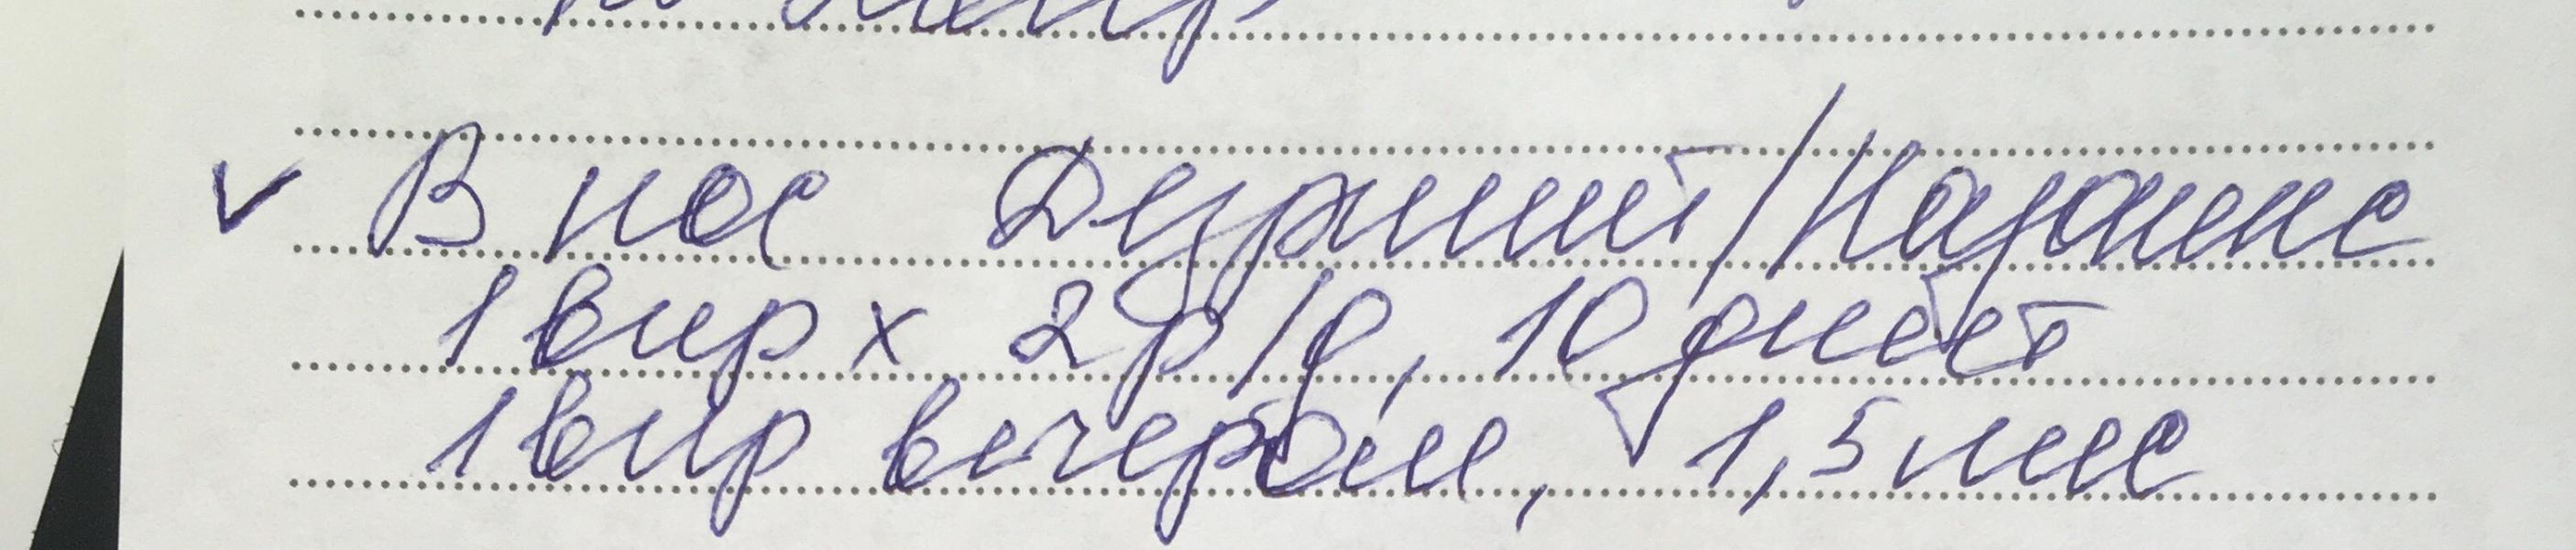 В нос Дезринит/Назонекс
1 впр х 2 р/д, 10 дней
1 впр вечером, 1,5 мес